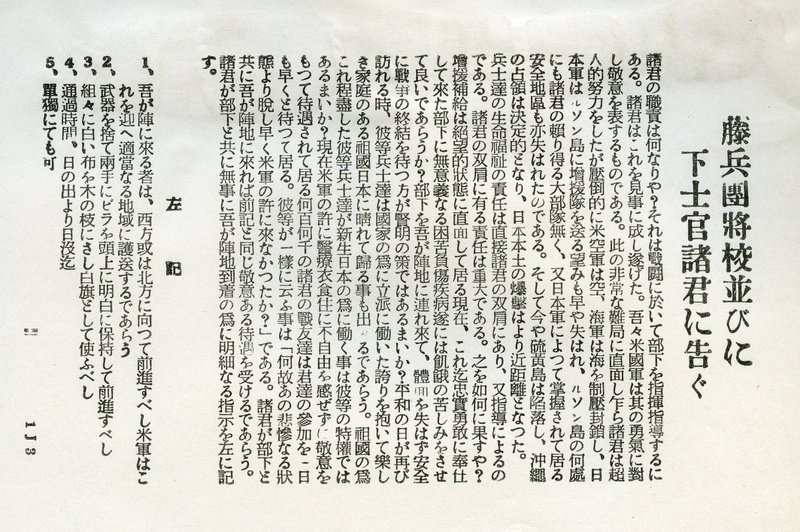 藤兵團將校並びに
下士官諸君に告ぐ
諸君の職責は何なりや？それは戰鬪に於いて部下を指揮指導するに
ある。諸君はこれを見事に成し遂げた。吾々米國軍は其の勇氣に對
し敬意を表するものである。此の非常な難局に直面し乍ら諸君は超
人的努力をしたが壓倒的に米空軍は空、海軍は海を制壓封鎖し、日
本軍はルソン島に增援隊を送る望みも早や失はれ、ルソン島の何處
にも諸君の賴り得る大部隊無く、又日本軍によつて掌握されて居る
安全地區も亦失はれたのである。そして今や硫黄島は陷落し、沖繩
の占領は決定的となり、日本本土の爆擊はより近距離となつた。
兵士達の生命福祉の責任は直接諸君の双肩にあり、又指導によるの
である。諸君の双肩に有る責任は重大である。之を如何に果すや？
增援補給は絕望的狀態に直面して居る現在、これ迄忠實勇敢に奉仕
して來た部下に無意義なる困苦負傷疾病遂には飢餓の苦しみをさせ
て良いであらうか？部下を吾が陣地に連れ來て、體面を失はず安全
に戰爭の終結を待つ方が賢明の策ではあるまいか？平和の日が再び
訪れる時、彼等兵士達は國家の爲に立派に働いた誇りを抱いて樂し
き家庭のある祖國日本に晴れて歸る事も出來るであらう。祖國の爲
これ程盡した彼等兵士達が新生日本の爲に働く事は彼等の特權では
あるまいか？現在米軍の許に醫療衣食住に不自由を感ぜずに敬意を
もつて待遇されて居る何百何千の諸君の戰友達は君達の參加を一日
も早くと待つて居る。彼等が一樣に云ふ事は「何故あの悲慘なる狀
態より脫し早く米軍の許に來なかつたか？」である。諸君が部下と
共に吾が陣地に來れば前記と同じ敬意ある待遇を受けるであらう。
諸君が部下と共に無事に吾が陣地到着の爲に明細なる指示を左に記
す。
左記
1、吾が陣に來る者は、西方或は北方に向つて前進すべし米軍はこ
れを迎へ適當なる地域に護送するであらう
2、武器を捨て兩手にビラを頭上に明白に保持して前進すべし
3、組々に白い布を木の枝にさし白旗として使ふべし
4、通過時間、日の出より日沒迄
5、單獨にても可
1J3